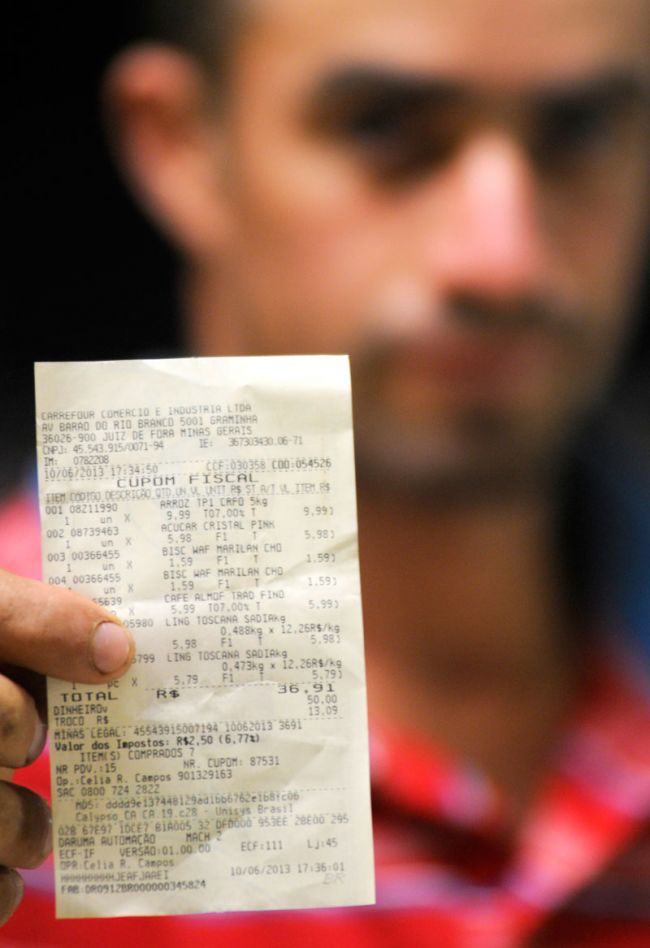 CARREFOUR COMERCIO E INDUSTRIA LTDA
AV BARAO DO RIO BRANCO 5001 GRAMINHA
36026-900 JUIZ DE FORA MINAS GERAIS
CNPJ: 45.543.915/0071-94 IE: 367303430.06-71
IM: 0782208
10/06/2013 17:34:50 CCF:030358 COO:054526
CUPOM FISCAL
ITEM CODIGO DESCRIÇÃO QTD.UN VL UNIT R$ ST A/T VL ITEM R$
001 08211990 ARROZ TP1 CRFO 5kg
1 un X 9.99 T07,00% T 9.99)
002 08739463 ACUCAR CRISTAL PINK
1 un X 5.98 F1 T 5.98)
003 00366455 BISC WAF MARILAN CHO
1 un X 1.59 F1 T 1.59)
004 00366455 BISC WAF MARILAN CHO
un X 1.59 F1 T 1.59)
55639 CAFE ALMOF TRAD FINO
X 5.99 T07,00% T 5.99)
05980 LING TOSCANA SADIAkg
0,488kg x 12.26R$/kg
5.98 F1 T 5.98)
5799 LING TOSCANA SADIAkg
0,473kg x 12.26R$/kg
1 pc X 5.79 F1 T 5.79)
TOTAL R$ 36,91
DINHEIRO 50,00
TROCO R$ 13,09
MINAS LEGAL: 45543915007194 10062013 3691
Valor dos Impostos: R$2,50 (6,77%)
ITEM(S) COMPRADOS 7
NR PDV.:15 NR. CUPOM: 87531
Op.:Celia R. Campos 901329163
SAC 0800 724 2822
MD5: dddd9e137448129ad1bb6762e1b8fc06
Calypso CA CA.19.c28 - Unisys Brasil
028 67E97 1DCE7 B1A005 32 DFD000 953EE 28E00 295
DARUMA AUTOMAÇÃO MACH 2
ECF-IF VERSÃO:01.00.00 ECF:111 Lj:45
OPR:Celia R. Campos
10/06/2013 17:36:01
FAB:DR0912BR000000345824 BR